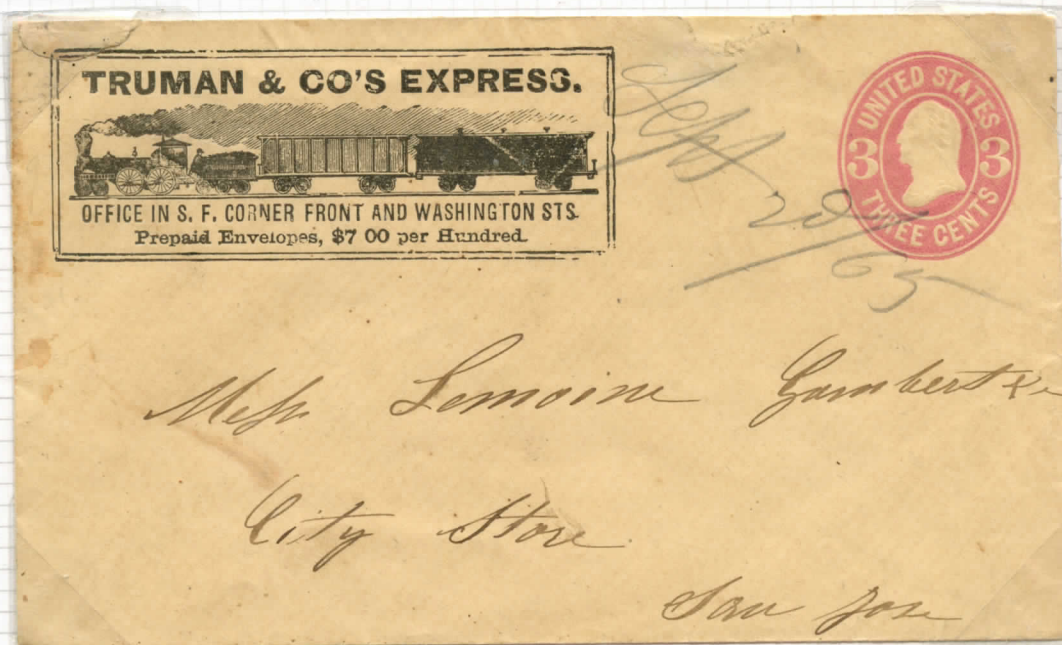 TRUMAN & CO'S EXPRESS.
OFFICE IN S. F. CORNER FRONT AND WASHINGTON STS.
Prepaid Envelopes, $7 00 per Hundred.
UNITED STATES
3 3
THREE CENTS
Sept
20/65
Mess Lemoine Gambert &
City Store
San Jose